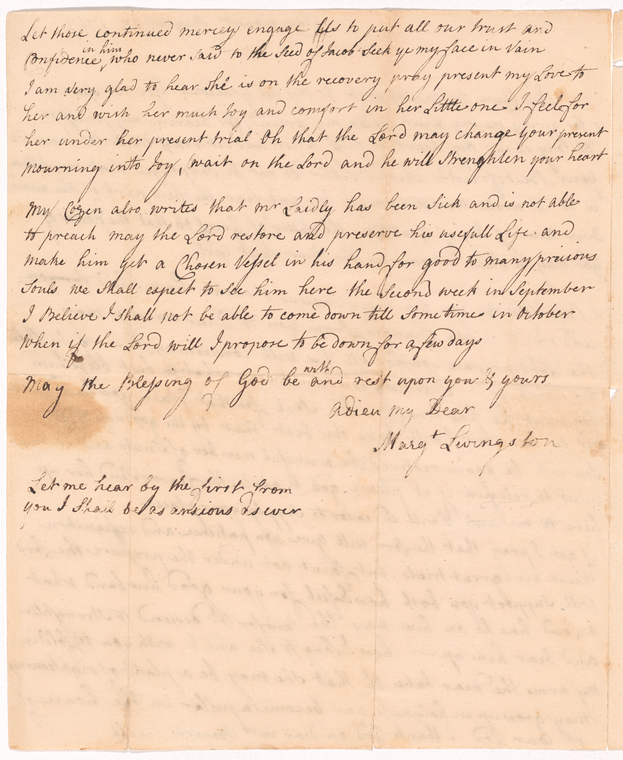 Let those continued mercey engage us to put all our trust and
Confidence in him who never said to the Seed of Jacob Seek ye my face in Vain
I am Very glad to hear She is on the recovery pray present my Love to
her and wish her much Joy and comfort in her Little one I feel for
her under her present trial Oh that the Lord may change your present
mourning into Joy, wait on the Lord and he will Strenghten your heart
My Cozen also writes that mr Laidly has been Sick and is not able
to preach may the Lord restore and preserve his usefull Life and
make him yet a Chosen Vessel in his hand for good to many precious
Souls we Shall expect to See him here the Second week in September
I Believe I Shall not be able to come down till Sometime in October
when if the Lord will I propose to be down for a few days
May the Blessing of God be with and rest upon you & yours
Adieu my Dear
Margt Livingston
Let me hear by the first from
you I Shall be as anxious as ever